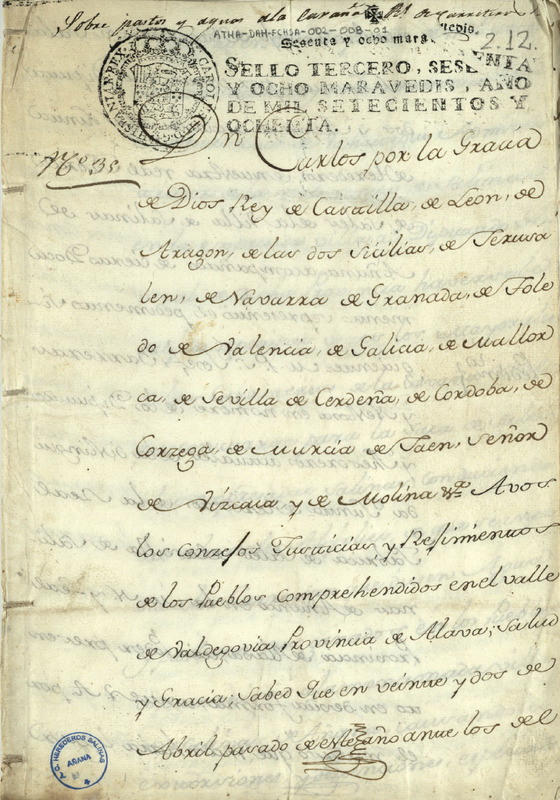 Sobre pastos y aguas
ATHA-DAH-FCHSA-002-008-01
Sesenta y ocho mara vedis.
212.
SELLO TERCERO, SESENTA
Y OCHO MARAVEDIS, AÑO
DE MIL SETECIENTOS Y
OCHENTA.
Nº 35
Carlos por la Gracia
de Dios Rey de Castilla, de Leon, de
Aragon, de las dos Sicilias, de Jerusa
len, de Navarra de Granada, de Tole
do de Valencia, de Galicia, de Mallor
ca, de Sevilla de Cerdeña, de Cordoba, de
Corzega, de Murcia de Jaen, Señor
de Vizcaia y de Molina &ª A vos
los conzejos Justicias y Rejimientos
de los Pueblos comprehendidos en el valle
de Valdegovia Provincia de Alava; Salud
y Gracia; Sabed Que en veinte y dos de
Abril pasado de este año ante los del
HEREDEROS SALINAS
AÑANA